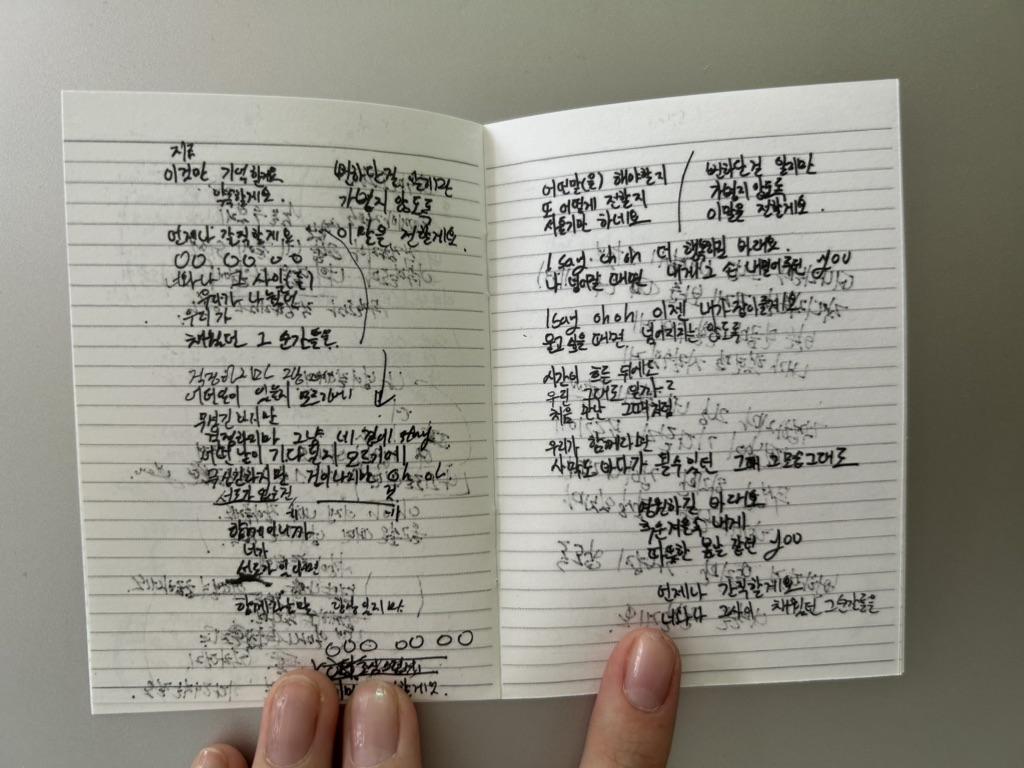 이것만 기억할게요
약속할게요.
언제나 간직할게요.
OO OO O O
너와 나 그 사이(을)
우리가 나눴던
우리가
채웠던 그 순간들을.
변하단걸 알지만
가볍지 않도록
이 말을 전할게요
걱정하지마
무섭긴 하지만
걱정하지마 그냥 네 곁에 stay
어떤 날이 기다릴지 모르기에
oh oh
함께라니까
너가
서로가 있다면
함께라는 말 잊지마
OOO OO OO
어떤말(을) 해야할지
또 어떻게 전할지
서툴기만 하네요
변하단걸 알지만
가볍지 않도록
이말을 전할게요.
I say. oh oh 더 행복하길 바래요.
나 넘어질 때면 내게 그 손 내밀어주던 you
I say oh oh 이제 내가 잡아줄게요
울고 싶을 때면 넘어지지는 않도록
시간이 흐른 뒤에도
우린 그대로 일까?
처음 만난 그때처럼
우리가 함께라면
사막도 바다가 될수 있던 그때 그 모습 그대로
영원하길 바래요
추운 겨울속 내게
따뜻한 봄날 같던 you
언제나 간직할게요
너와 나 그사이 채웠던 그순간들을